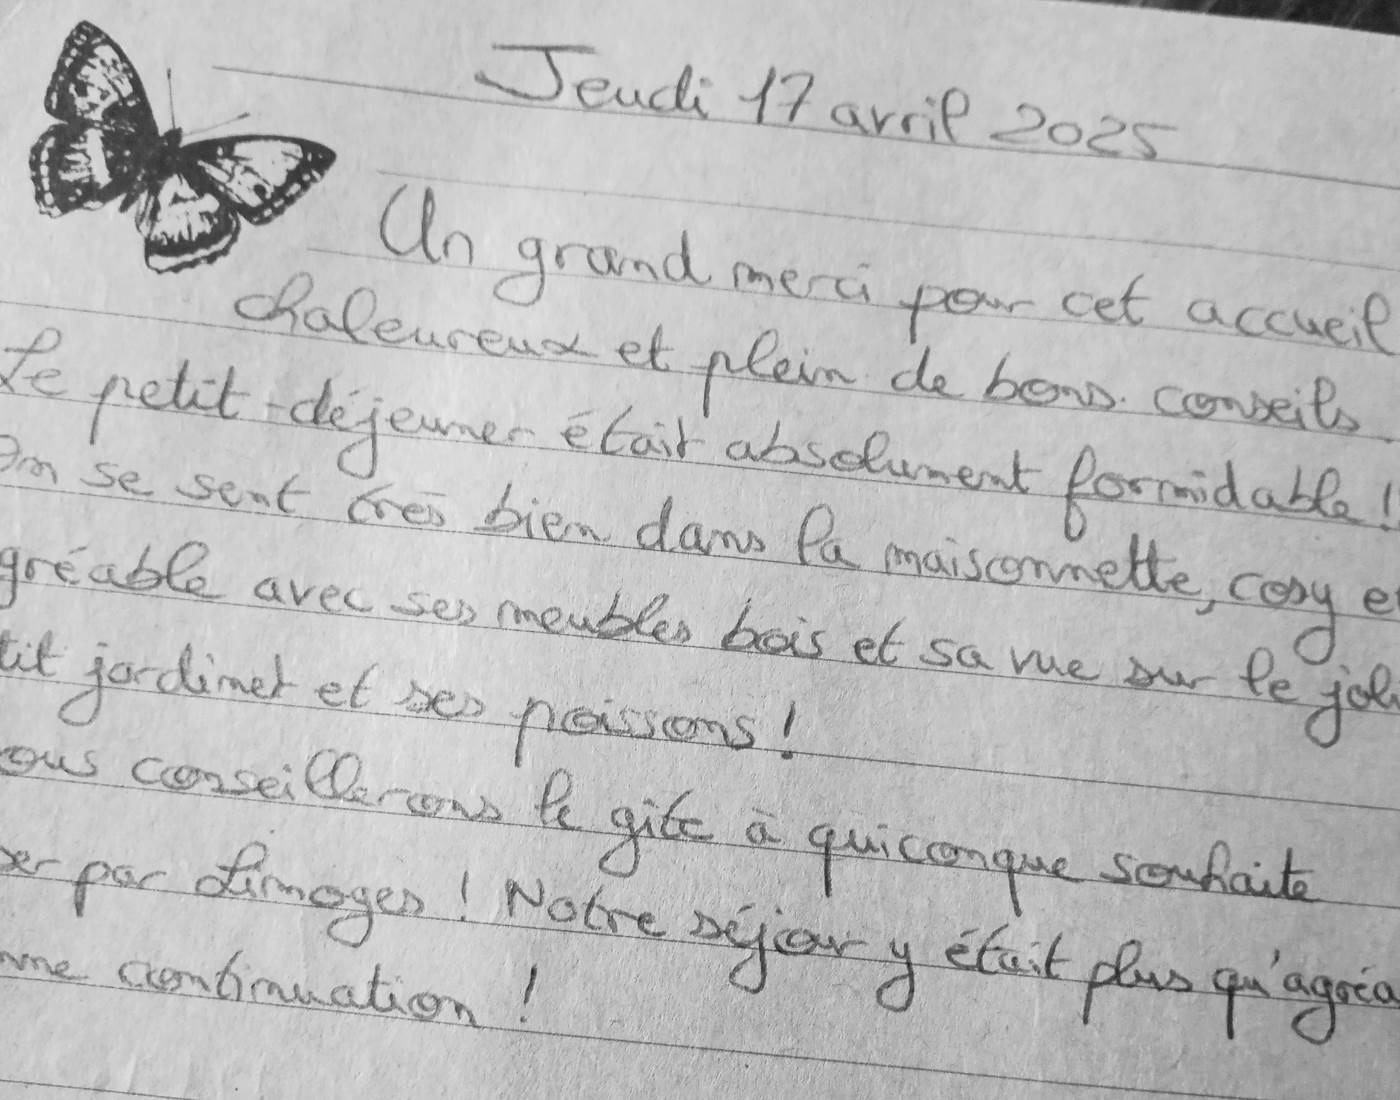 Jeudi 17 avril 2025
Un grand merci pour cet accueil
chaleureux et plein de bons conseils.
Le petit-déjeuner était absolument formidable !
On se sent très bien dans la maisonnette, cosy et
gréable avec ses meubles bois et sa vue sur le joli
tit jardinet et ses poissons !
ous conseillerons le gîte à quiconque souhaite
er par Limoges ! Notre séjour y était plus qu'agréa
nne continuation !